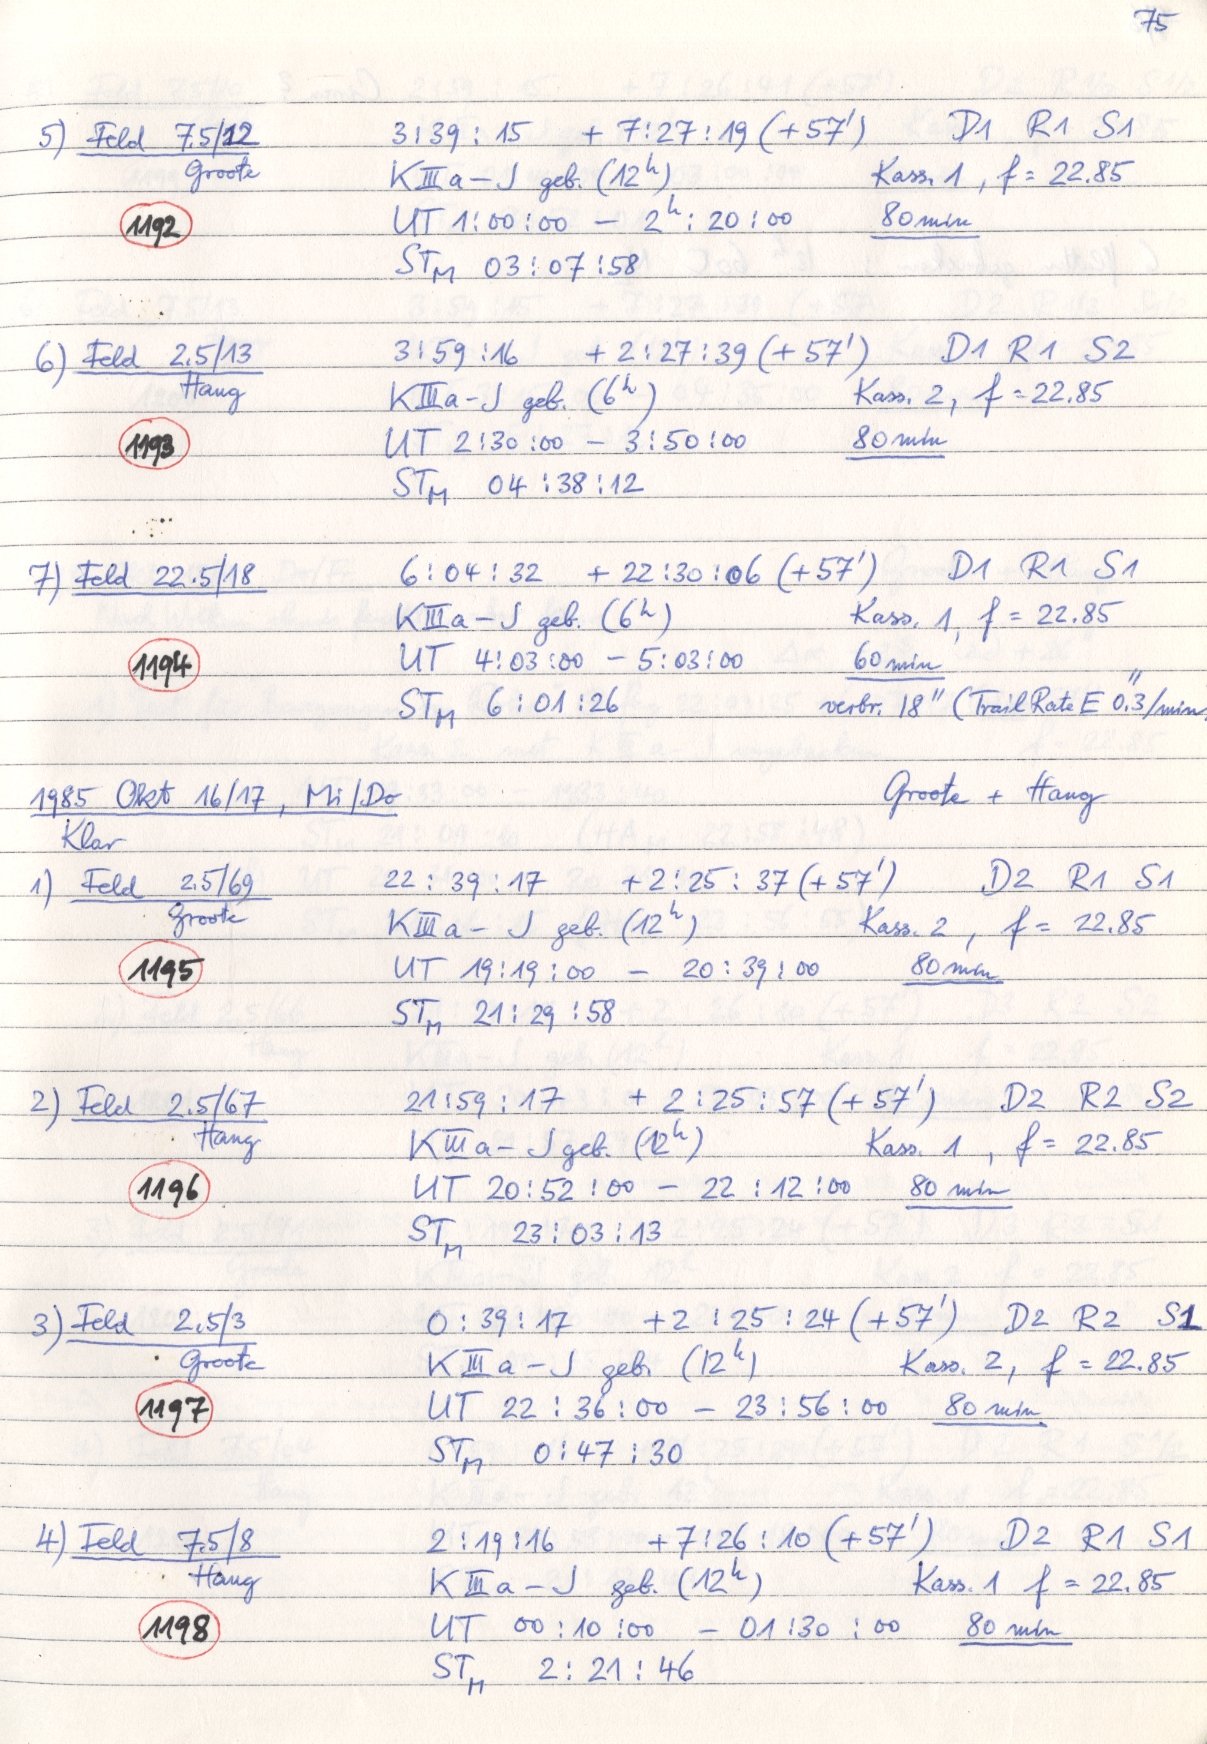 75
5) Feld 7.5/12 3:39:15 + 7:27:19 (+57') D1 R1 S1
Groote KIIIa-J geb. (12h) Kass. 1, f = 22.85
1192 UT 1:00:00 - 2h:20:00 80 min
STM 03:07:58
6) Feld 2.5/13 3:59:16 + 2:27:39 (+57') D1 R1 S2
Hang KIIIa-J geb. (6h) Kass. 2, f = 22.85
1193 UT 2:30:00 - 3:50:00 80 min
STM 04:38:12
7) Feld 22.5/18 6:04:32 + 22:30:06 (+57') D1 R1 S1
KIIIa-J geb. (6h) Kass. 1, f = 22.85
1194 UT 4:03:00 - 5:03:00 60 min
STM 6:01:26 verbr. 18" (Trail Rate E 0."3/min.
1985 Okt 16/17, Mi/Do Groote + Hang
Klar
1) Feld 2.5/69 22:39:17 + 2:25:37 (+57') D2 R1 S1
Groote KIIIa-J geb. (12h) Kass. 2, f = 22.85
1195 UT 19:19:00 - 20:39:00 80 min
STM 21:29:58
2) Feld 2.5/67 21:59:17 + 2:25:57 (+57') D2 R2 S2
Hang KIIIa-J geb. (12h) Kass. 1, f = 22.85
1196 UT 20:52:00 - 22:12:00 80 min
STM 23:03:13
3) Feld 2.5/3 0:39:17 +2:25:24 (+57') D2 R2 S1
Groote KIIIa-J geb. (12h) Kass. 2, f = 22.85
1197 UT 22:36:00 - 23:56:00 80 min
STM 0:47:30
4) Feld 7.5/8 2:19:16 +7:26:10 (+57') D2 R1 S1
Hang KIIIa-J geb. (12h) Kass. 1 f = 22.85
1198 UT 00:10:00 - 01:30:00 80 min
STM 2:21:46